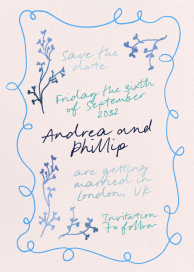 Save the
date
Friday the sixth
of September
2032
Andrea and
Phillip
are getting
married in
London, UK
Invitation
to follow